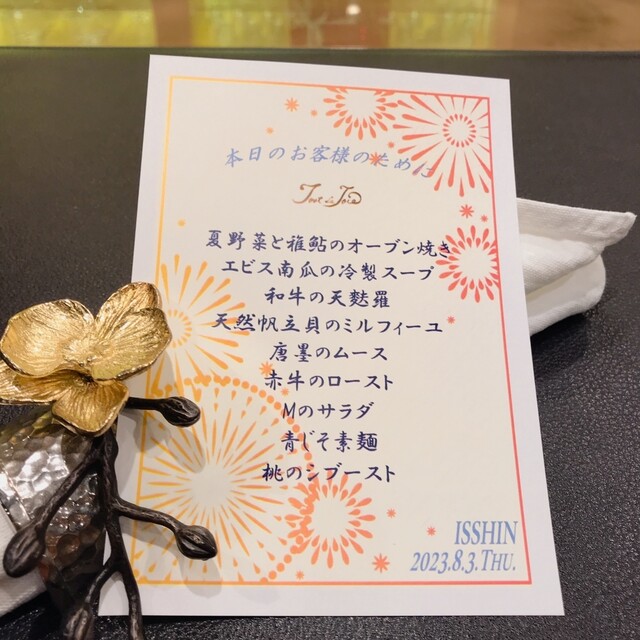 本日のお客様のために
夏野菜と稚鮎のオーブン焼き
エビス南瓜の冷製スープ
和牛の天麩羅
天然帆立貝のミルフィーユ
唐墨のムース
赤牛のロースト
Mのサラダ
青じそ素麺
桃のシブースト
ISSHIN
2023.8.3.THU.